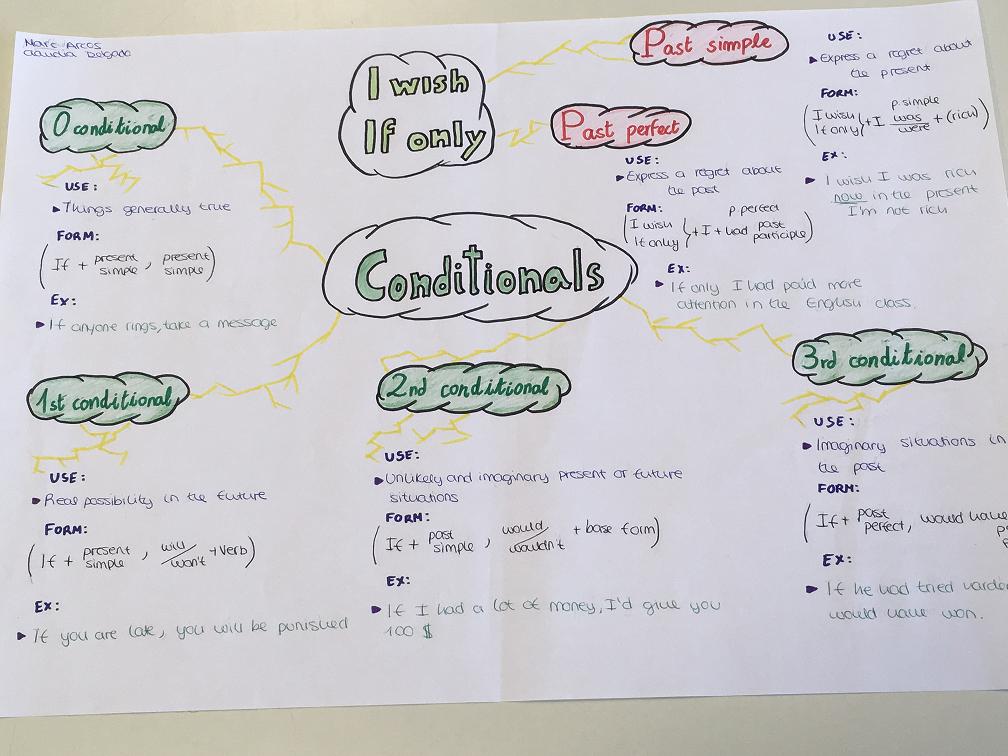 Marc Arcos
Claudia Delgado
I wish
If only
Past simple
USE:
Express a regret about
the present
FORM:
I wish
If only
+ I
p. simple
was
were
+ (rich)
EX:
I wish I was rich
now in the present
I'm not rich
Past perfect
USE:
Express a regret about
the past
FORM:
I wish
If only
p. perfect
+ I + had past
participle
EX:
If only I had paid more
attention in the English class.
Conditionals
0 conditional
USE:
Things generally true
FORM:
(If + present simple, present simple)
EX:
If anyone rings, take a message
1st conditional
USE:
Real possibility in the future
FORM:
(If + present simple, will/won't + verb)
EX:
If you are late, you will be punished
2nd conditional
USE:
Unlikely and imaginary present or future
situations
FORM:
(If + past simple, would/wouldn't + base form)
EX:
If I had a lot of money, I'd give you
100 $
3rd conditional
USE:
Imaginary situations in
the past
FORM:
(If + past perfect, would have
EX:
If he had tried harder
would have won.